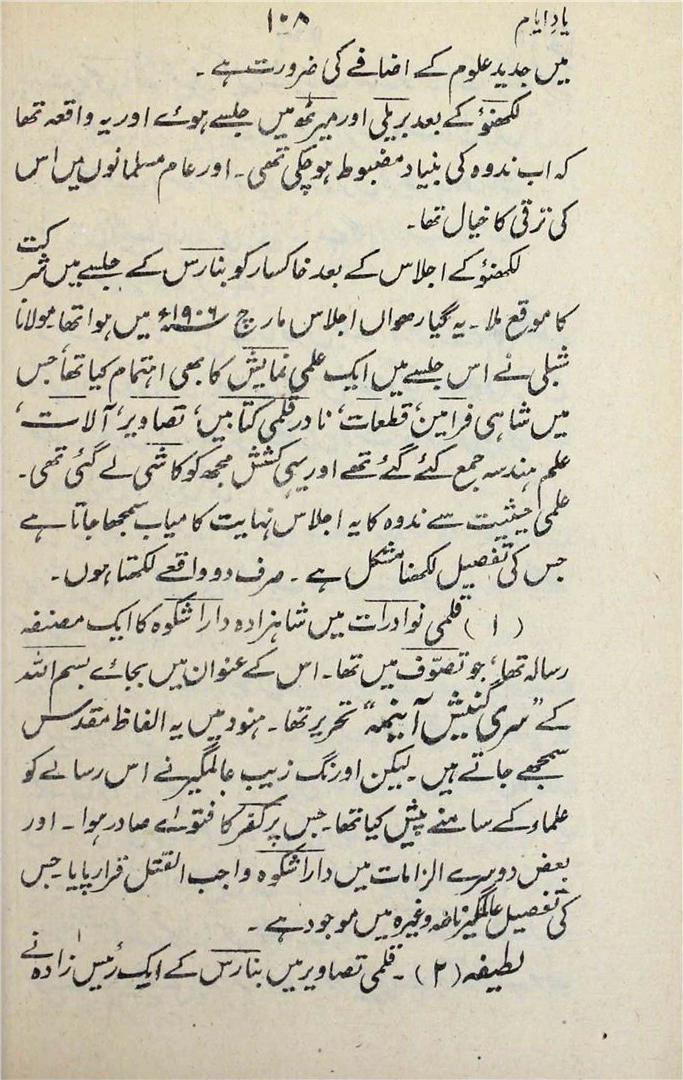 یادِ ایام ۱۰۸
میں جدید علوم کے اضافے کی ضرورت ہے ۔
لکھنؤ کے بعد بریلی اور میرٹھ میں جلسے ہوئے اور یہ واقعہ تھا
کہ اب ندوہ کی بنیاد مضبوط ہو چکی تھی ۔ اور عام مسلمانوں میں اس
کی ترقی کا خیال تھا ۔
لکھنؤ کے اجلاس کے بعد خاکسار کو بنارس کے جلسے میں شرکت
کا موقع ملا ۔ یہ گیارھواں اجلاس مارچ ۱۹۰۶ء میں ہوا تھا مولانا
شبلی نے اس جلسے میں ایک علمی نمایش کا بھی اہتمام کیا تھا، جس
میں شاہی فرامین، قطعات، نادر قلمی کتابیں، تصاویر، آلات،
علم ہندسہ جمع کئے گئے تھے اور یہی کشش مجھ کو کاشی لے گئی تھی ۔
علمی حیثیت سے ندوہ کا یہ اجلاس نہایت کامیاب سمجھا جاتا ہے
جس کی تفصیل لکھنا مشکل ہے ۔ صرف دو واقعے لکھتا ہوں ۔
(۱) قلمی نوادرات میں شاہزادہ داراشکوہ کا ایک مصنفہ
رسالہ تھا، جو تصوّف میں تھا ۔ اس کے عنوان میں بجائے بسم اللہ
کے ”سری گنیش آینمہ“ تحریر تھا ۔ ہنود میں یہ الفاظ مقدس
سمجھے جاتے ہیں ۔ لیکن اورنگ زیب عالمگیر نے اس رسالے کو
علماء کے سامنے پیش کیا تھا ۔ جس پر کفر کا فتوے صادر ہوا ۔ اور
بعض دوسرے الزامات میں داراشکوہ واجب القتل قرار پایا جس
کی تفصیل عالمگیر نامہ وغیرہ میں موجود ہے ۔
لطیفہ (۲) ۔ قلمی تصاویر میں بنارس کے ایک رئیس زادہ نے